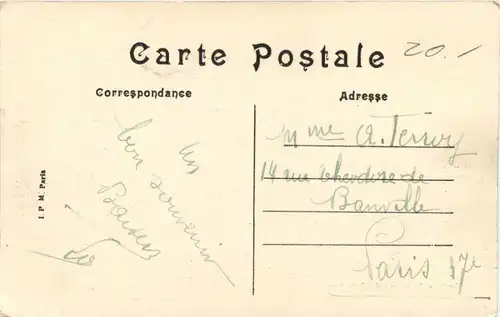 Carte Postale
20.-
Correspondance
Adresse
un
bon souvenir
Baisers
Mme A. Terroy
14 rue theodore de
Banville
Paris 17e
I. P. M. Paris